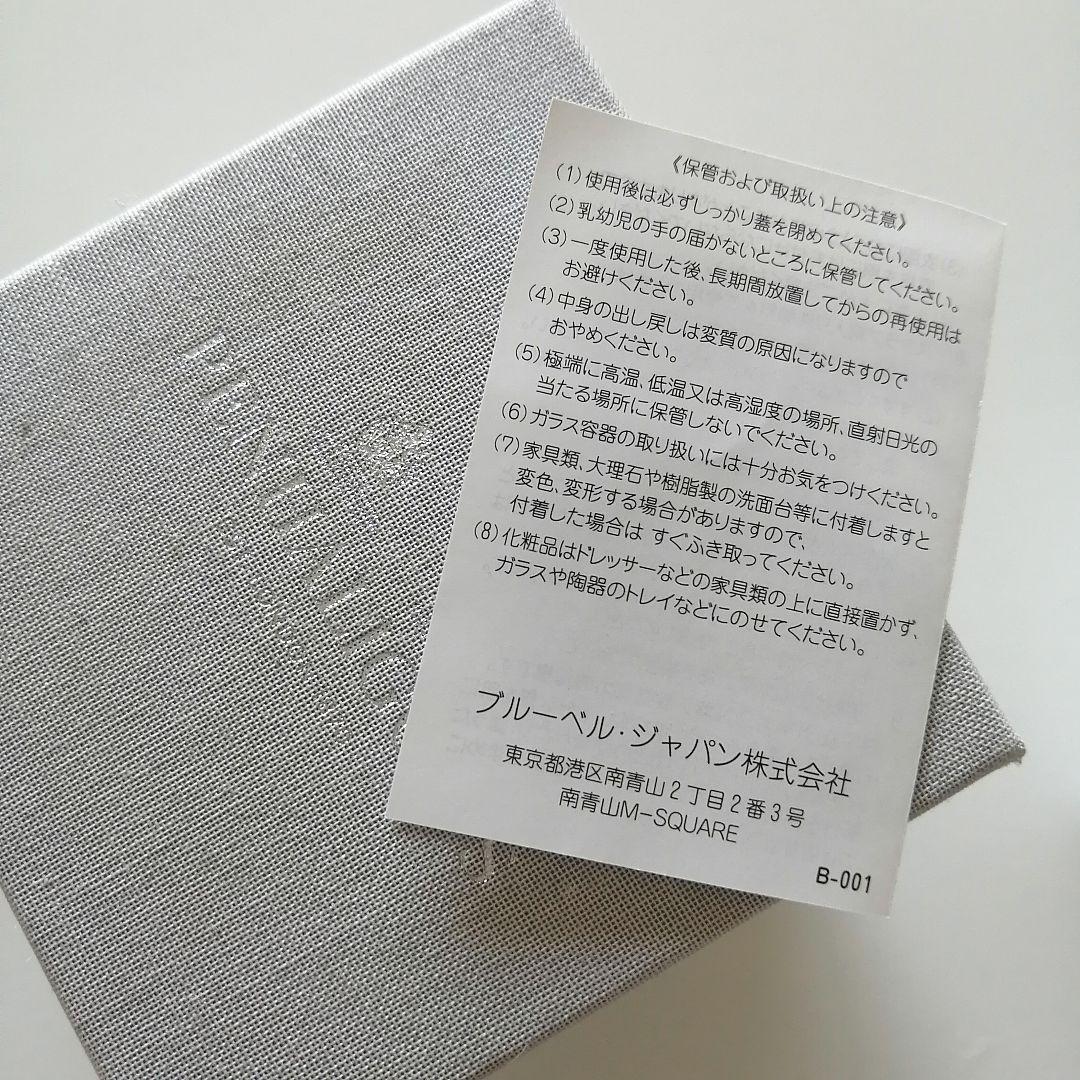 《保管および取扱い上の注意》
(1)使用後は必ずしっかり蓋を閉めてください。
(2)乳幼児の手の届かないところに保管してください。
(3)一度使用した後、長期間放置してからの再使用は
お避けください。
(4)中身の出し戻しは変質の原因になりますので
おやめください。
(5)極端に高温、低温又は高湿度の場所、直射日光の
当たる場所に保管しないでください。
(6)ガラス容器の取り扱いには十分お気をつけください。
(7)家具類、大理石や樹脂製の洗面台等に付着しますと
変色、変形する場合がありますので、
付着した場合は すぐふき取ってください。
(8)化粧品はドレッサーなどの家具類の上に直接置かず、
ガラスや陶器のトレイなどにのせてください。
ブルーベル・ジャパン株式会社
東京都港区南青山2丁目2番3号
南青山M-SQUARE
B-001